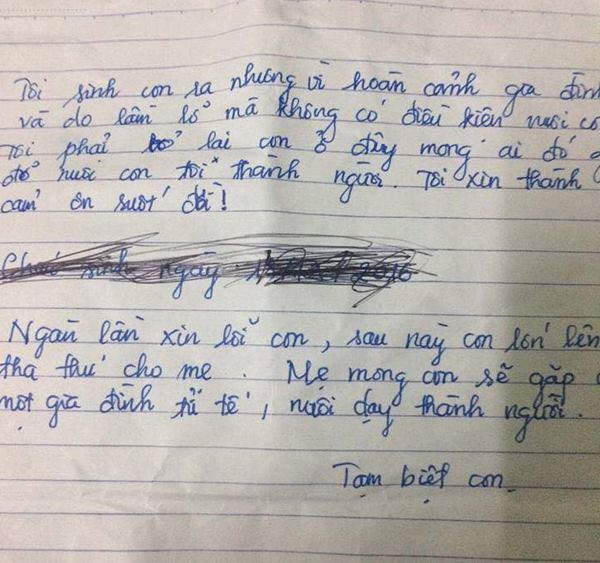 Tôi sinh con ra nhưng vì hoàn cảnh gia đìn
và do lầm lỡ mà không có điều kiện nuôi co
Tôi phải bỏ lại con ở đây mong ai đó
đó nuôi con tôi thành người. Tôi xin thành
cảm ơn suốt đời!
Cháu sinh ngày 2016
Ngàn lần xin lỗi con, sau này con lớn lên
tha thứ cho mẹ. Mẹ mong con sẽ gặp
một gia đình tử tế, nuôi dạy thành người.
Tạm biệt con.